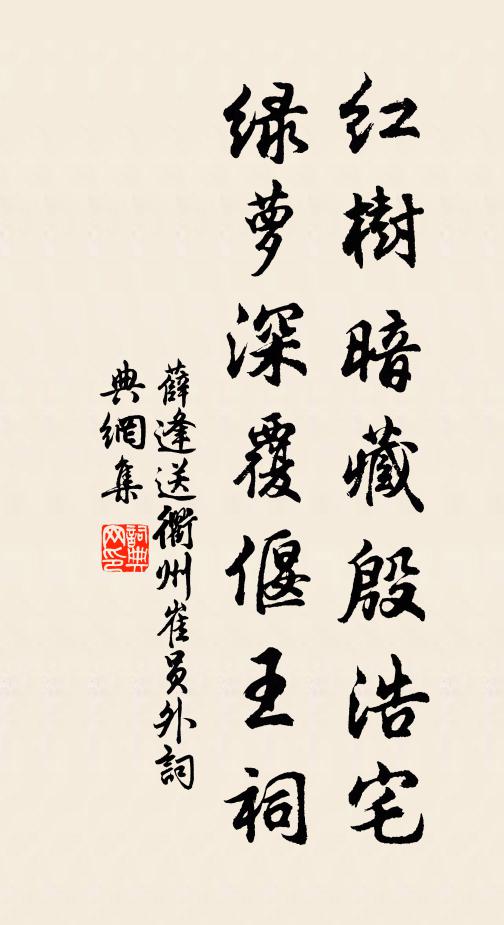 红樹暗藏殷浩宅
绿萝深覆偃王祠
薛逢送衢州崔員外詞
典網集
詞典網印